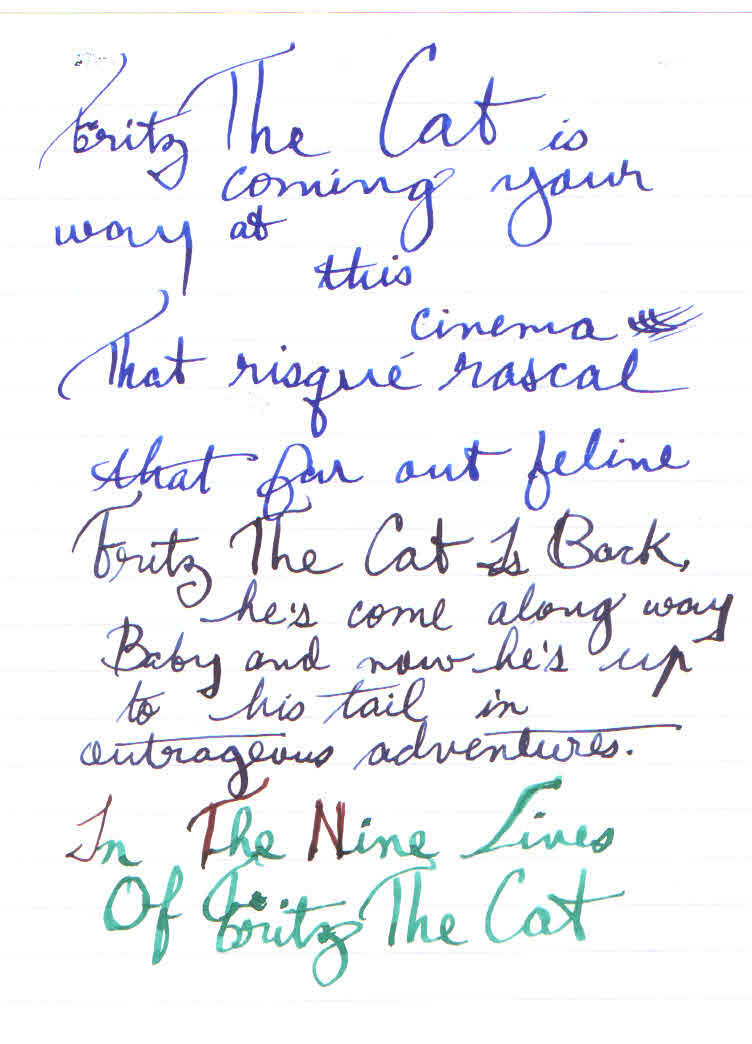 Fritz The Cat is
coming your
way at
this
cinema
That risqué rascal
that far out feline
Fritz The Cat Is Back,
he's come along way
Baby and now he's up
to his tail in
outrageous adventures.
In The Nine Lives
Of Fritz The Cat